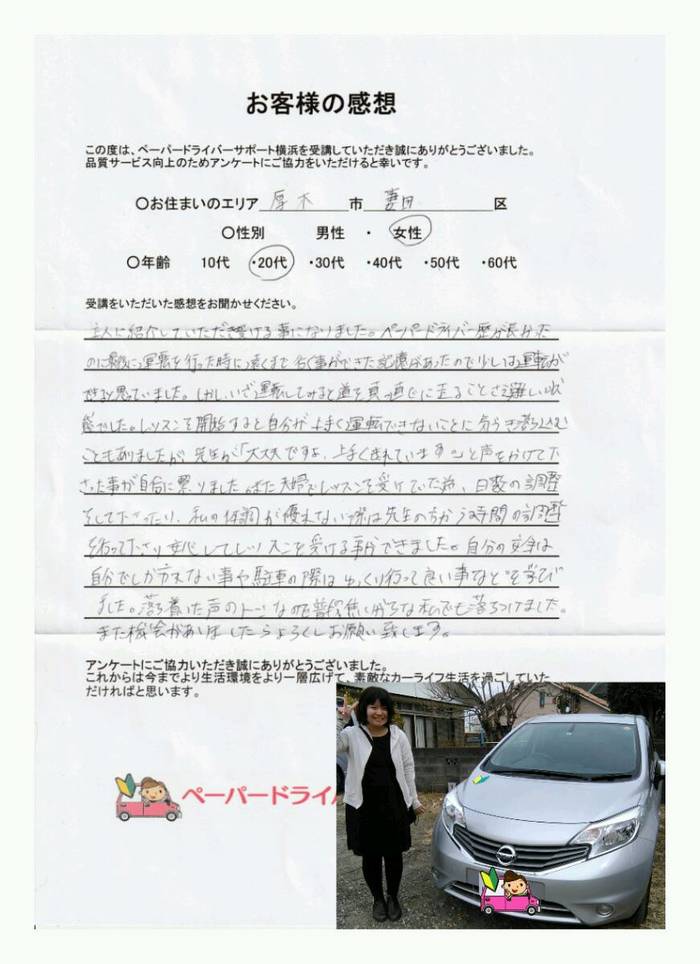 お客様の感想
この度は、ペーパードライバーサポート横浜を受講していただき誠にありがとうございました。
品質サービス向上のためアンケートにご協力をいただけると幸いです。
〇お住まいのエリア 厚木 市 妻田 区
〇性別 男性 ・ 女性
〇年齢 10代 ・20代 ・30代 ・40代 ・50代 ・60代
受講をいただいた感想をお聞かせください。
主人に紹介していただき受ける事になりました。ペーパードライバー歴が長かった
のに最後に運転を行った時に遠くまで行く事ができた記憶があったので少しは運転が
できると思っていました。しかしいざ運転してみると道を真っ直ぐに走ることさえ難しい状
態でした。レッスンを開始すると自分が上手く運転できないことに気づき落ち込む
こともありましたが、先生が「大丈夫ですよ、上手くされています」と声をかけて下
さった事が自信に繋りました。また夫婦でレッスンを受けていた為、日数の調整
をして下さったり、私の体調が優れない際は先生の方から時間の調整
を行って下さり安心してレッスンを受ける事ができました。自分の安全は
自分でしか守れない事や駐車の際はゆっくり行って良い事などを学び
ました。落ち着いた声のトーンなので普段焦りがちな私でも落ちつけました。
また機会がありましたらよろしくお願い致します。
アンケートにご協力いただき誠にありがとうございました。
これからは今までより生活環境をより一層広げて、素敵なカーライフ生活を過ごしていた
だければと思います。
ペーパードライ